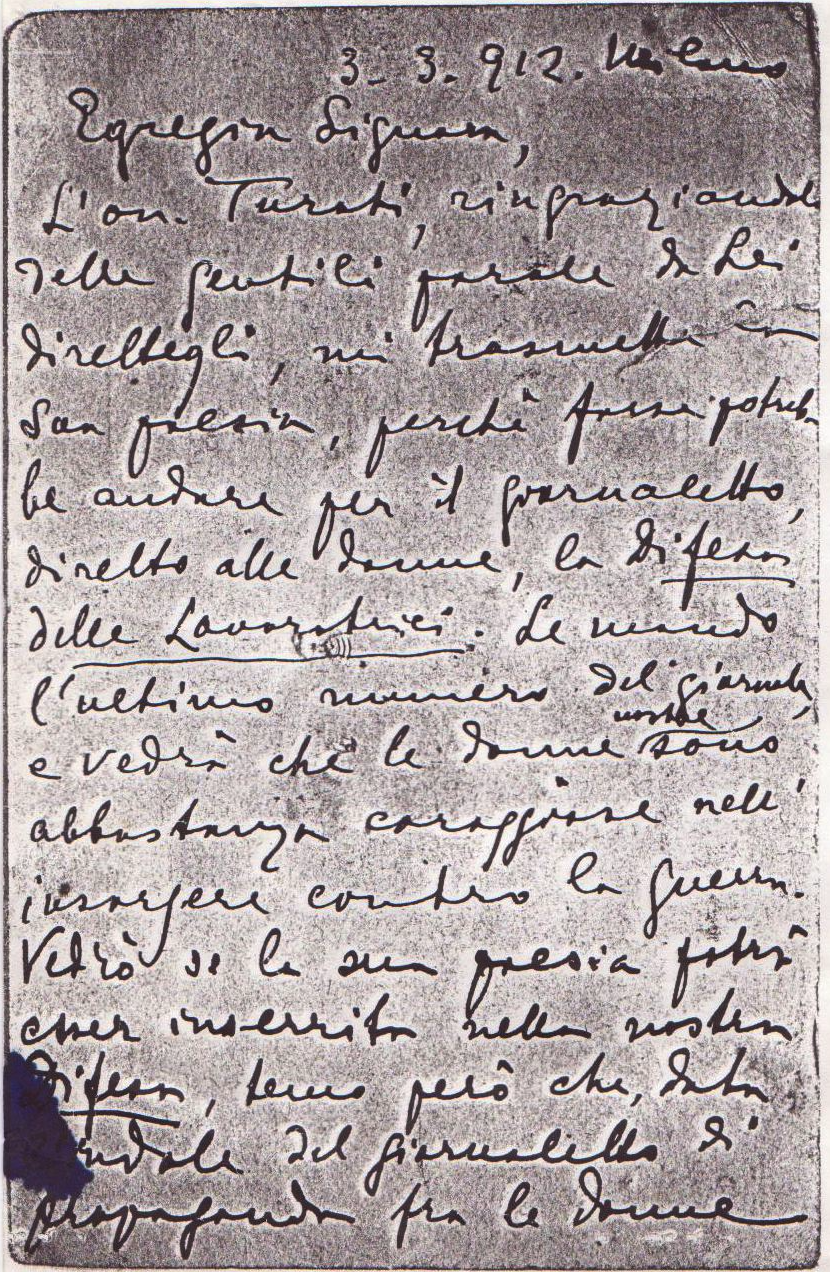 3-3.912. Milano
Egregia Signora,
L'on. Turati, ringraziandola
delle gentili parole da Lei
direttegli, mi trasmette una
Sua poesia, perchè forse potreb
be andare per il giornaletto,
diretto alle donne, la Difesa
delle Lavoratrici. Le mando
l'ultimo numero del giornale,
e vedrà che le donne nostre sono
abbastanza coraggiose nell'
insorgere contro la guerra.
Vedrò se la sua poesia potrà
esser inserrita nella nostra
Difesa, temo però che, data
indole del giornaletto di
propaganda fra le donne